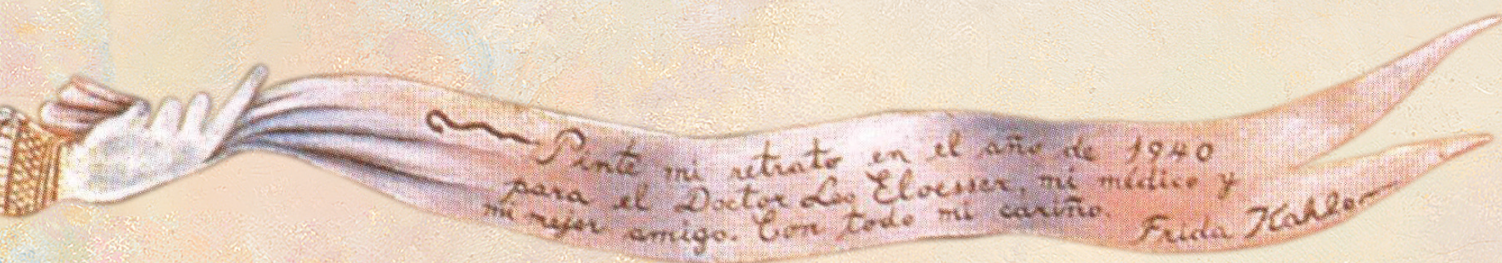 Pinté mi retrato en el año de 1940
para el Doctor Leo Eloesser, mi médico y
mi mejor amigo. Con todo mi cariño.
Frida Kahlo